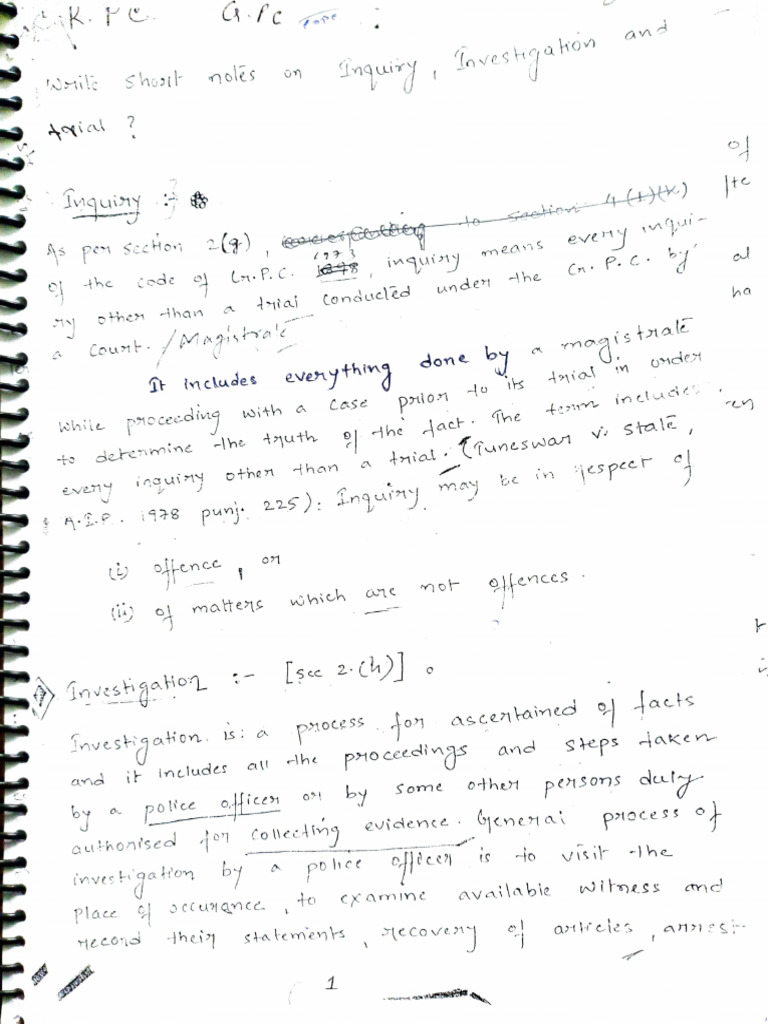 C.R.P.C. Cr.Pc
Write short notes on Inquiry, Investigation and
trial ?
Inquiry :-
As per section 2(g), to section 4(1)(k)
of the code of Cr.P.C. 1973, inquiry means every inqui-
ry other than a trial conducted under the Cr.P.C. by
a court. / Magistrate
It includes everything done by a magistrate
while proceeding with a case prior to its trial in order
to determine the truth of the fact. The term includes
every inquiry other than a trial. (Tuneswar v. State,
A.I.R. 1978 punj. 225): Inquiry may be in respect of
(i) offence, or
(ii) of matters which are not offences.
Investigation :- [sec 2.(h)].
Investigation is: a process for ascertained of facts
and it includes all the proceedings and steps taken
by a police officer or by some other persons duly
authorised for collecting evidence. General process of
investigation by a police officer is to visit the
place of occurance, to examine available witness and
record their statements, recovery of articles, arres-
1
of
lte
al
ha